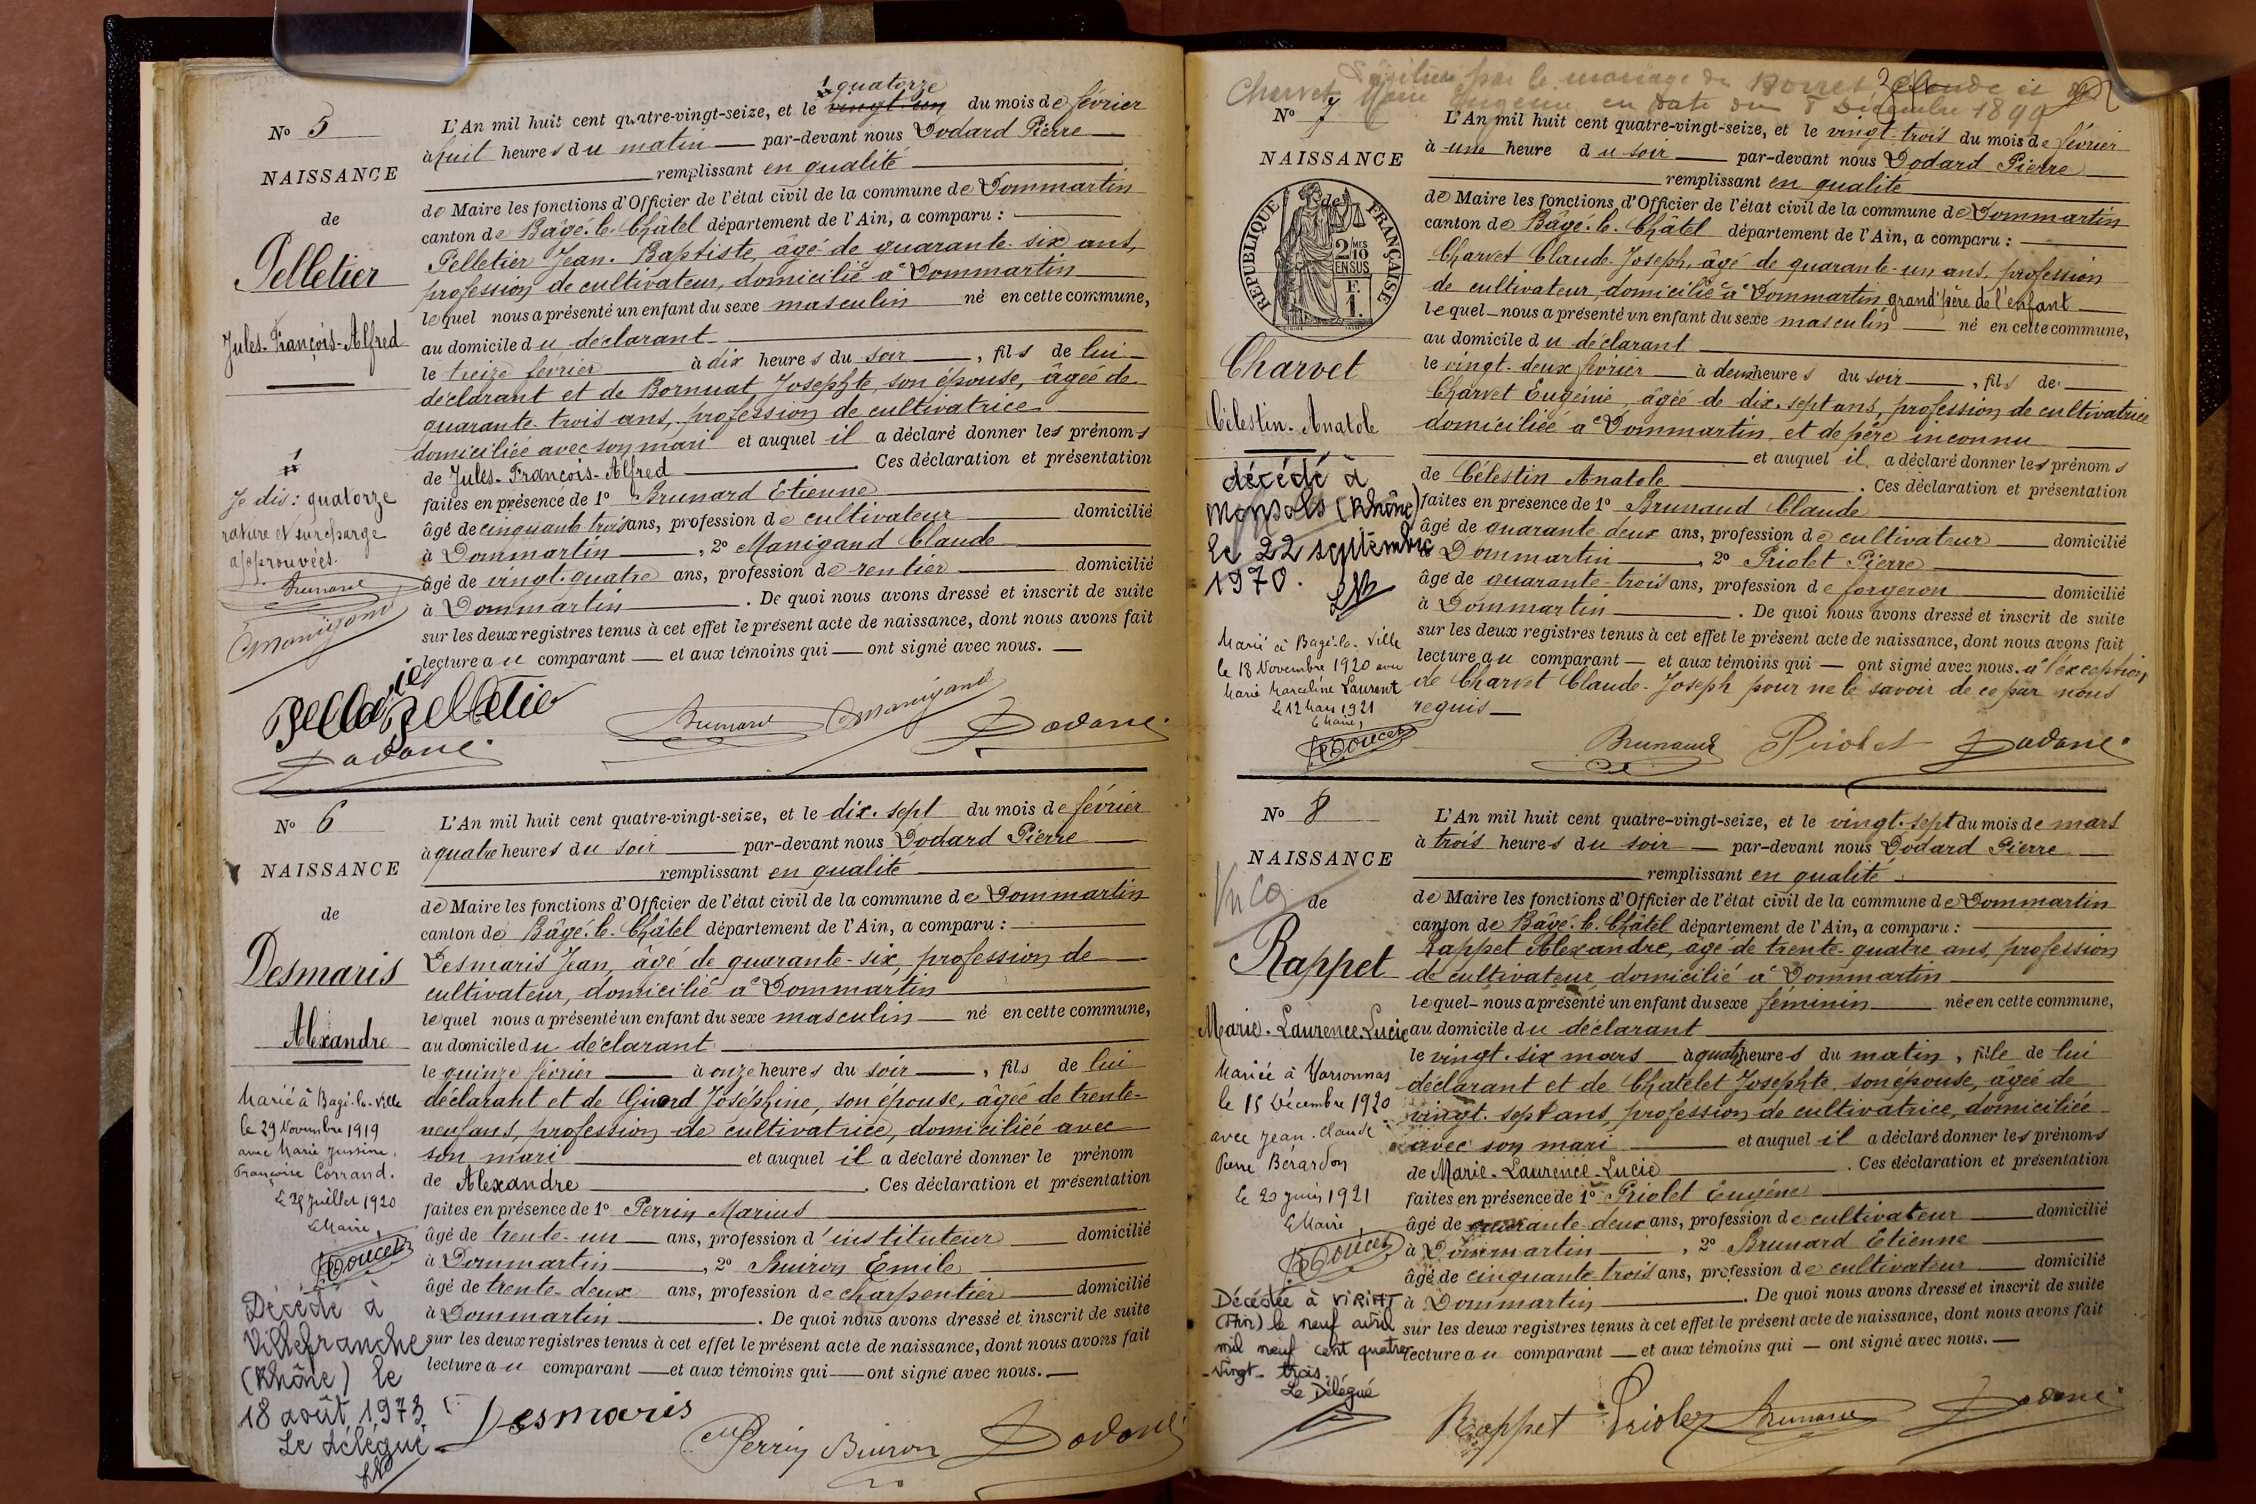 quatorze
N° 5
L'An mil huit cent quatre-vingt-seize, et le vingt un du mois de février
à huit heures du matin par-devant nous Dodard Pierre
NAISSANCE
remplissant en qualité
de
de Maire les fonctions d'Officier de l'état civil de la commune de Dommartin
canton de Bâgé-le-Châtel département de l'Ain, a comparu :
Pelletier
Pelletier Jean-Baptiste, âgé de quarante-six ans,
profession de cultivateur, domicilié à Dommartin
lequel nous a présenté un enfant du sexe masculin né en cette commune,
Jules-François-Alfred
au domicile du déclarant
le treize février à dix heures du soir, fils de lui
déclarant et de Bornuat Josephte, son épouse, âgée de
quarante-trois ans, profession de cultivatrice
domiciliée avec son mari et auquel il a déclaré donner les prénoms
de Jules-François-Alfred. Ces déclaration et présentation
faites en présence de 1° Brunard Etienne
âgé de cinquante trois ans, profession de cultivateur domicilié
à Dommartin, 2° Manigand Claude
âgé de vingt-quatre ans, profession de rentier domicilié
à Dommartin. De quoi nous avons dressé et inscrit de suite
sur les deux registres tenus à cet effet le présent acte de naissance, dont nous avons fait
lecture au comparant et aux témoins qui ont signé avec nous.
1
Je dis : quatorze
rature et surcharge
approuvées.
Brunard
Manigand
Pelletier
Brunard Manigand Dodard
Dodard
N° 6
L'An mil huit cent quatre-vingt-seize, et le dix-sept du mois de février
à quatre heures du soir par-devant nous Dodard Pierre
NAISSANCE
remplissant en qualité
de
de Maire les fonctions d'Officier de l'état civil de la commune de Dommartin
canton de Bâgé-le-Châtel département de l'Ain, a comparu :
Desmaris
Desmaris Jean, âgé de quarante-six, profession de
cultivateur, domicilié à Dommartin
lequel nous a présenté un enfant du sexe masculin né en cette commune,
Alexandre
au domicile du déclarant
le quinze février à onze heures du soir, fils de lui
déclarant et de Guerd Joséphine, son épouse, âgée de trente-
neuf ans, profession de cultivatrice, domiciliée avec
son mari et auquel il a déclaré donner le prénom
de Alexandre. Ces déclaration et présentation
faites en présence de 1° Perrin Marius
âgé de trente-un ans, profession d'instituteur domicilié
à Dommartin, 2° Buiron Emile
âgé de trente-deux ans, profession de charpentier domicilié
à Dommartin. De quoi nous avons dressé et inscrit de suite
sur les deux registres tenus à cet effet le présent acte de naissance, dont nous avons fait
lecture au comparant et aux témoins qui ont signé avec nous.
Marié à Bagé-la-Ville
le 29 Novembre 1919
avec Marie
Françoise Corrand.
Le 28 Juillet 1920
Le Maire,
Doucet
Décédé à
Villefranche
(Rhône) le
18 août 1973
Le délégué
Desmaris
Perrin Buiron Dodard
par le mariage de Borret Claude et de
Charvet Marie Eugénie en date du 5 Décembre 1899
N° 7
L'An mil huit cent quatre-vingt-seize, et le vingt-trois du mois de février
à une heure du soir par-devant nous Dodard Pierre
NAISSANCE
remplissant en qualité
de
de Maire les fonctions d'Officier de l'état civil de la commune de Dommartin
canton de Bâgé-le-Châtel département de l'Ain, a comparu :
REPUBLIQUE FRANÇAISE
2/10 MES
EN SUS
F.
1.
Charvet Claude-Joseph, âgé de quarante-un ans, profession
de cultivateur, domicilié à Dommartin grand'père de l'enfant
lequel nous a présenté un enfant du sexe masculin né en cette commune,
au domicile du déclarant
Charvet
le vingt-deux février à deux heures du soir, fils de
Charvet Eugénie, âgée de dix-sept ans, profession de cultivatrice
Célestin-Anatole
domiciliée à Dommartin, et de père inconnu
et auquel il a déclaré donner les prénoms
de Célestin Anatole. Ces déclaration et présentation
faites en présence de 1° Brunaud Claude
âgé de quarante deux ans, profession de cultivateur domicilié
à Dommartin, 2° Priolet Pierre
âgé de quarante-trois ans, profession de forgeron domicilié
à Dommartin. De quoi nous avons dressé et inscrit de suite
sur les deux registres tenus à cet effet le présent acte de naissance, dont nous avons fait
lecture au comparant et aux témoins qui ont signé avec nous. à l'exception
de Charvet Claude-Joseph pour ne le savoir de ce par nous
requis
décédé à
Monsols (Rhône)
le 22 septembre
1970.
Marié à Bagé-la-Ville
le 18 Novembre 1920 avec
Marie Marceline Laurent
Le 12 Mars 1921
Le Maire,
Doucet
Brunaud Priolet Dodard
N° 8
L'An mil huit cent quatre-vingt-seize, et le vingt-sept du mois de mars
à trois heures du soir par-devant nous Dodard Pierre
NAISSANCE
remplissant en qualité
de
de Maire les fonctions d'Officier de l'état civil de la commune de Dommartin
canton de Bâgé-le-Châtel département de l'Ain, a comparu :
Rappet
Rappet Alexandre, âgé de trente-quatre ans, profession
de cultivateur domicilié à Dommartin
lequel nous a présenté un enfant du sexe féminin née en cette commune,
Marie-Laurence-Lucie
au domicile du déclarant
le vingt-six mars à quatre heures du matin, fille de lui
déclarant et de Chatelet Josephte son épouse, âgée de
vingt-sept ans, profession de cultivatrice, domiciliée
avec son mari et auquel il a déclaré donner les prénoms
de Marie-Laurence-Lucie. Ces déclaration et présentation
faites en présence de 1° Priolet Eugène
âgé de quarante-deux ans, profession de cultivateur domicilié
à Dommartin, 2° Brunard Etienne
âgé de cinquante trois ans, profession de cultivateur domicilié
à Dommartin. De quoi nous avons dressé et inscrit de suite
sur les deux registres tenus à cet effet le présent acte de naissance, dont nous avons fait
lecture au comparant et aux témoins qui ont signé avec nous.
Mariée à Varsonnas
le 15 Décembre 1920
avec Jean-Claude
Pierre Bérardon
Le 20 juin 1921
Le Maire,
Doucet
Décédée à VIRIAT
(Ain) le neuf avril
mil neuf cent quatre-
vingt-trois.
Le Délégué
Rappet Priolet Brunard Dodard